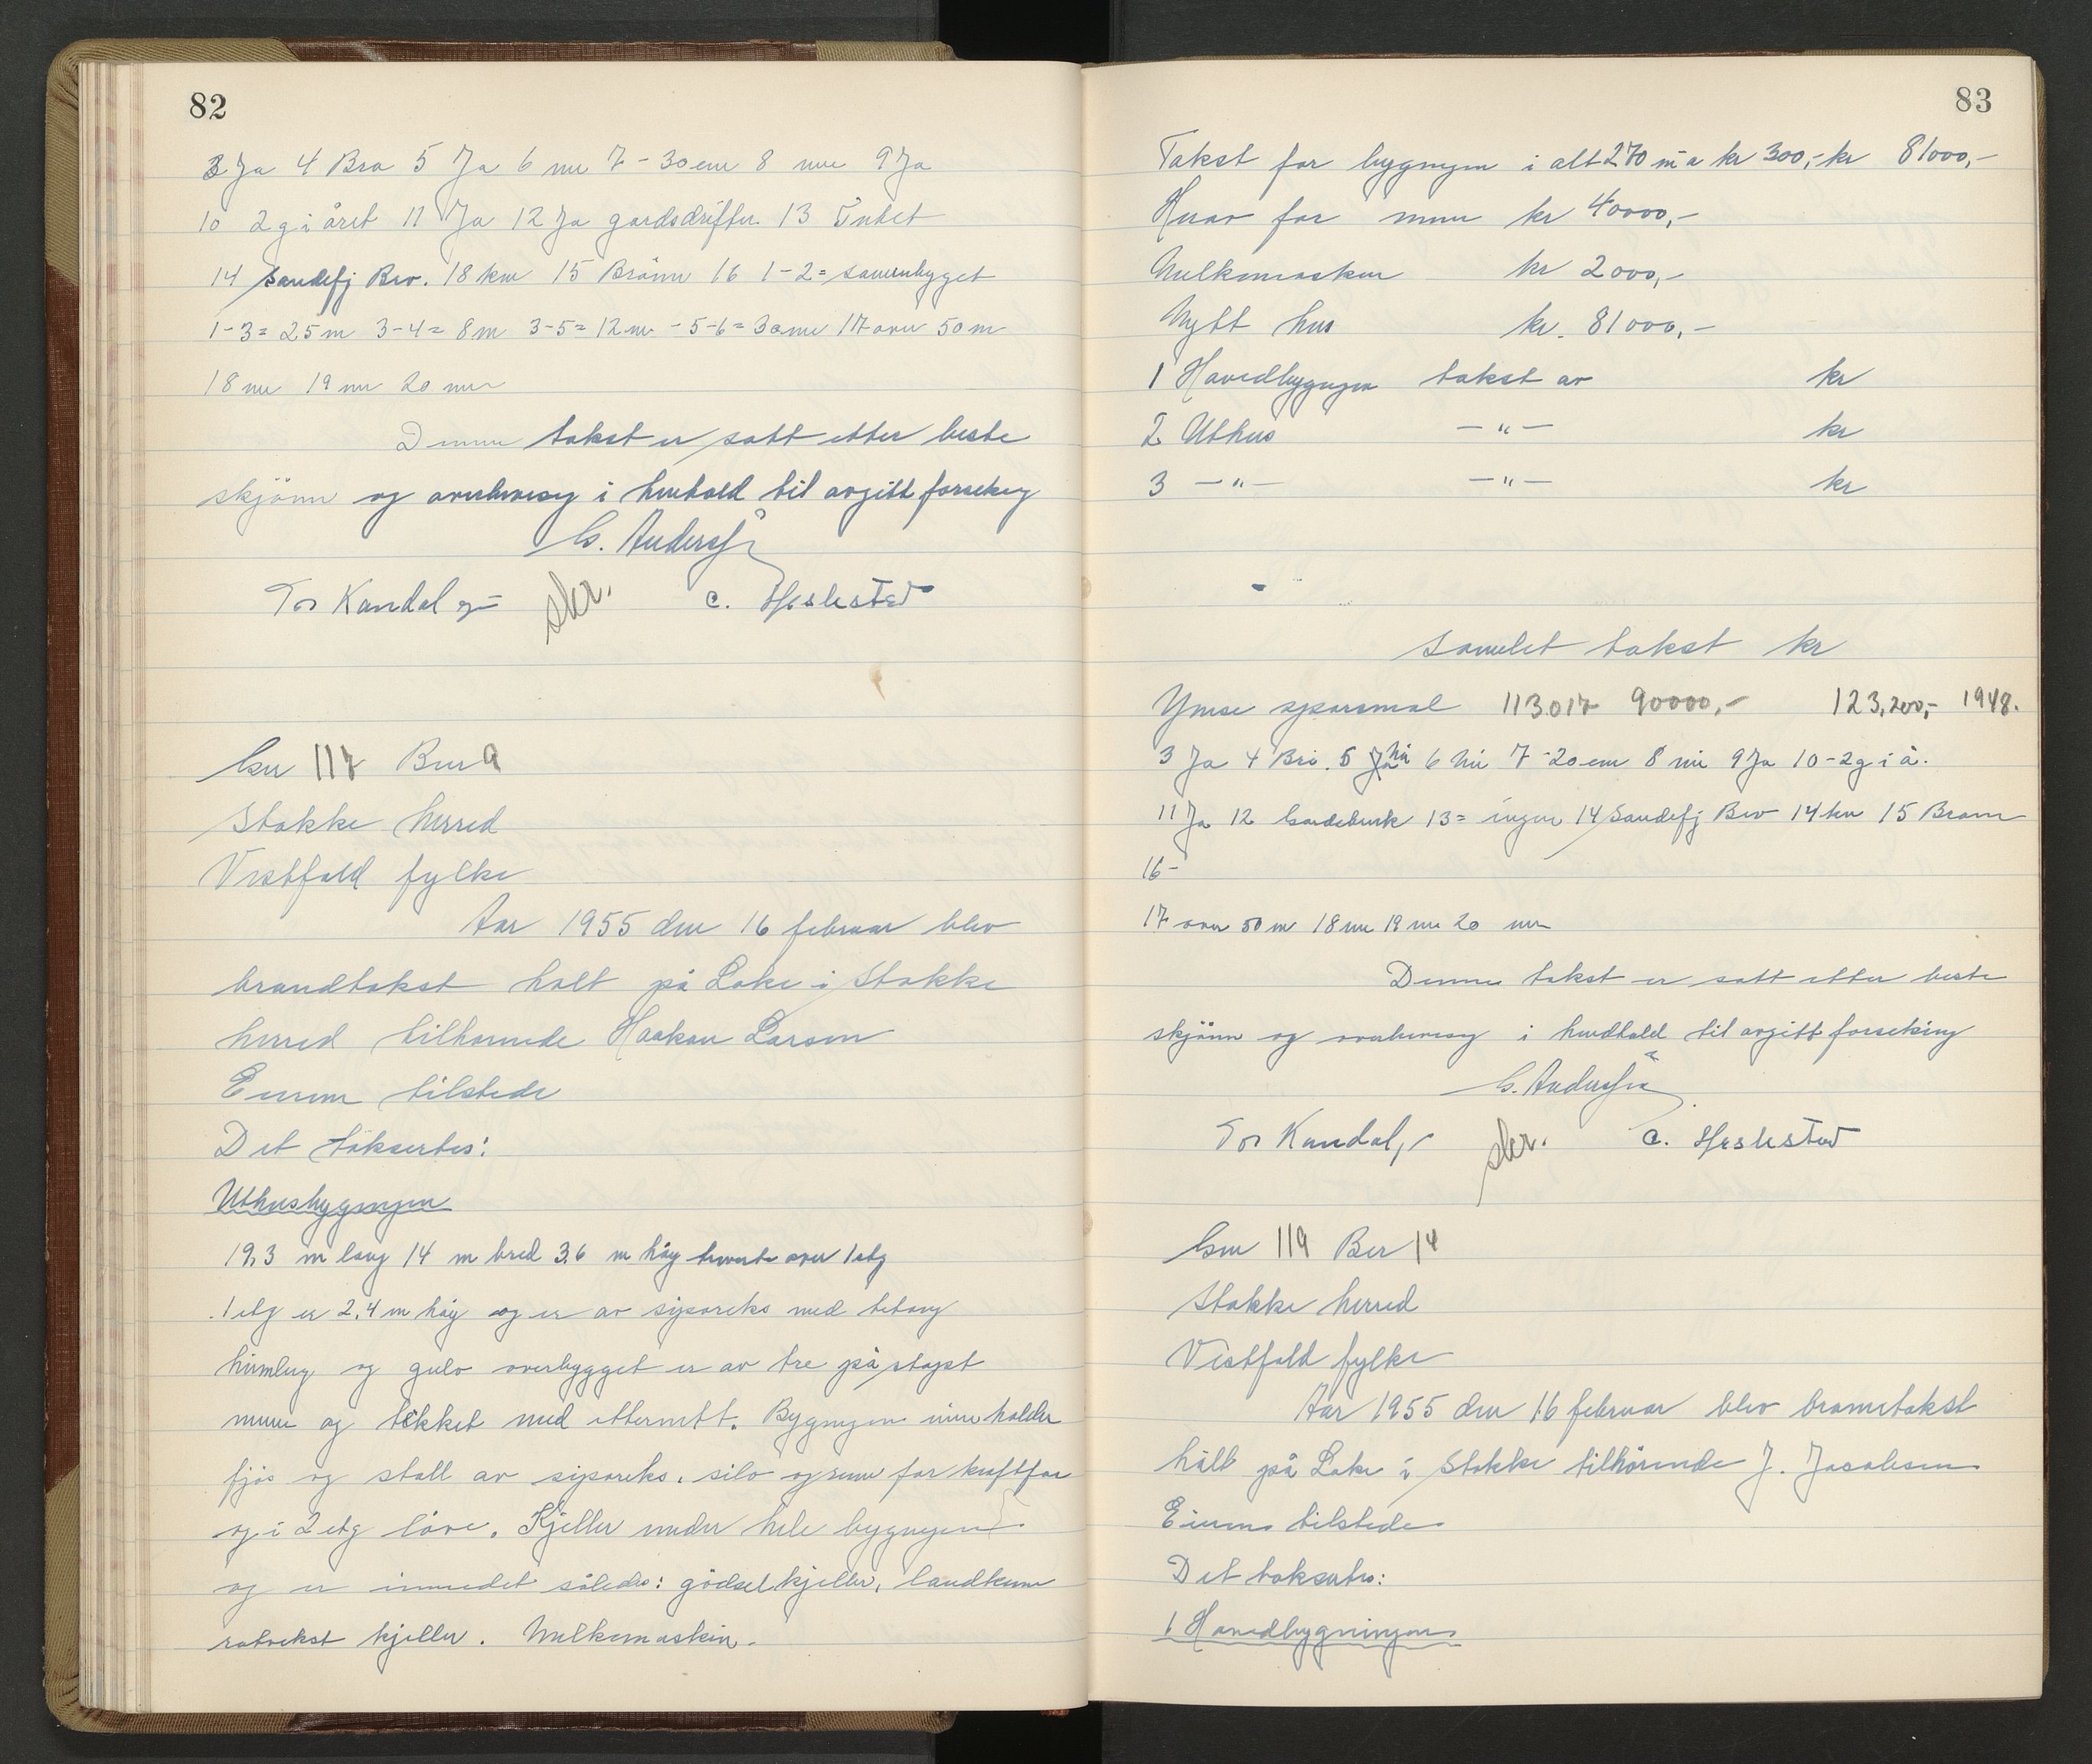 82
3 Ja 4 Bra 5 Ja 6 nei 7 - 30 cm 8 nei 9 Ja
10 2 g i året 11 Ja 12 Ja gardsdrifter 13 Intet
14 Sandefj Brv. 18 km 15 Brönn 16 1-2= samenbygget
1-3= 25 m 3-4= 8 m 3-5= 12 m - 5-6= 30 m 17 over 50 m
18 nei 19 nei 20 nei
Denne takst er satt etter beste
skjönn og overbevisng i henhold til avgitt forsekrng
G. Anderssen
Tor Kandal skr. C. Heslested
Gnr 117 Bnr 9
Stokke herred
Vestfold fylke
Aar 1955 den 16 februar blev
brandtakst holt på Lake i Stokke
herred tilhornede Haakon Larsen
Eieren tilstede
Det taksertes:
Uthusbygnngen
19,3 m lang 14 m bred 3,6 m høy over 1 etg
1 etg er 2,4 m høy og er av siporeks med betong
himling og gulv overbygget er av tre på stöpt
mur og tekket med eternitt. Bygnngen inneholder
fjös og stall av siporeks, silo og rum for kraftfor
og i 2 etg låve. Kjeller under hele bygnngen
og er innredet således: gödselkjeller, landkum
rotvekst kjeller. Melkemaskin.
83
Takst for bygnngen i alt 270 m² a kr 300,- kr 81000,-
Herav for mur kr 40000,-
Melkemaskin kr 2000,-
Nytt hus kr. 81000,-
1 Hovedbygnngen takst av kr
2 Uthus — " — kr
3 — " — — " — kr
Samlet takst kr
Ymse sporsmal 113017 90000,- 123,200,- 1948.
3 Ja 4 Bra 5 Ja nei 6 nei 7 - 20 cm 8 nei 9 Ja 10 - 2 g i å.
11 Ja 12 Gardsbruk 13= ingen 14 Sandefj Brv 14 km 15 Brönn
16 -
17 over 50 m 18 nei 19 nei 20 nei
Denne takst er satt etter beste
skjönn og overbevisng i henhold til avgitt forsekring
G. Anderssen
Tor Kandal skr. C. Heslested
Gnr 119 Bnr 14
Stokke herred
Vestfold fylke
Aar 1955 den 16 februar blev branntakst
hålt på Lake i Stokke tilhörende J. Jacobsen
Eieren tilstede
Det taksertes:
1 Hovedbygningen